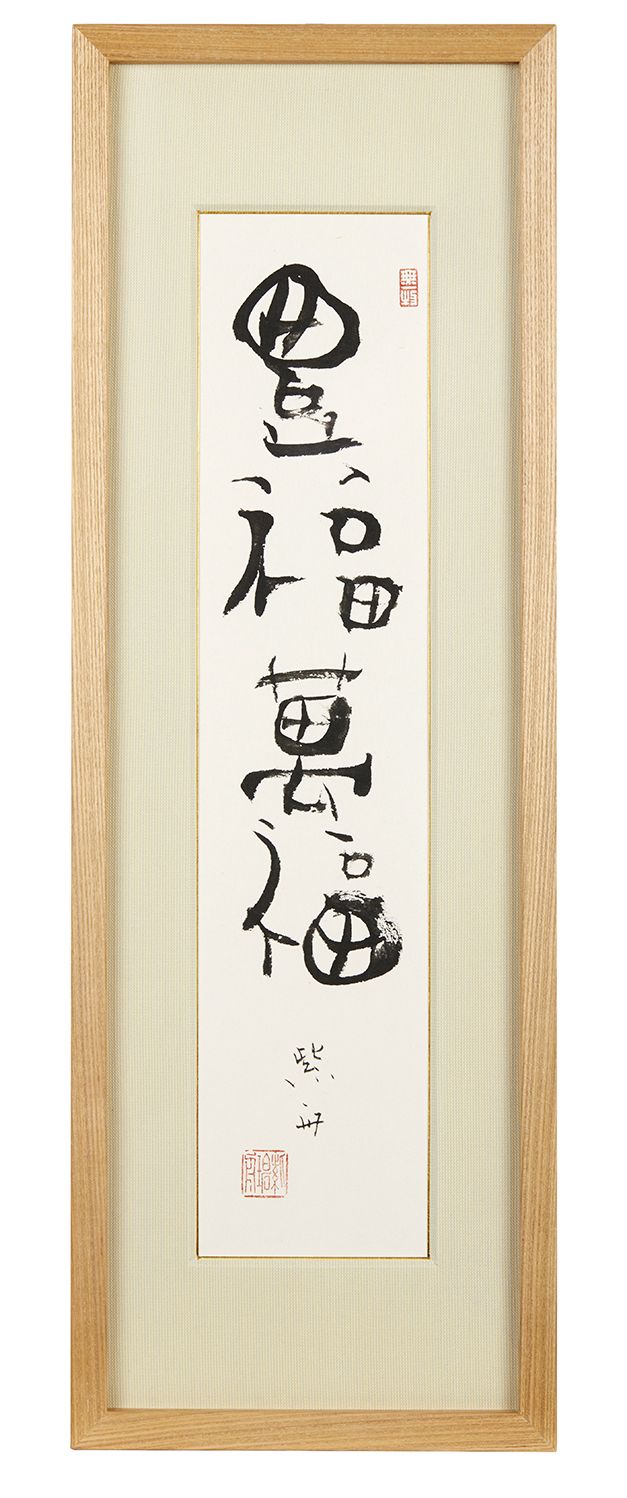 豊福萬福
紫舟